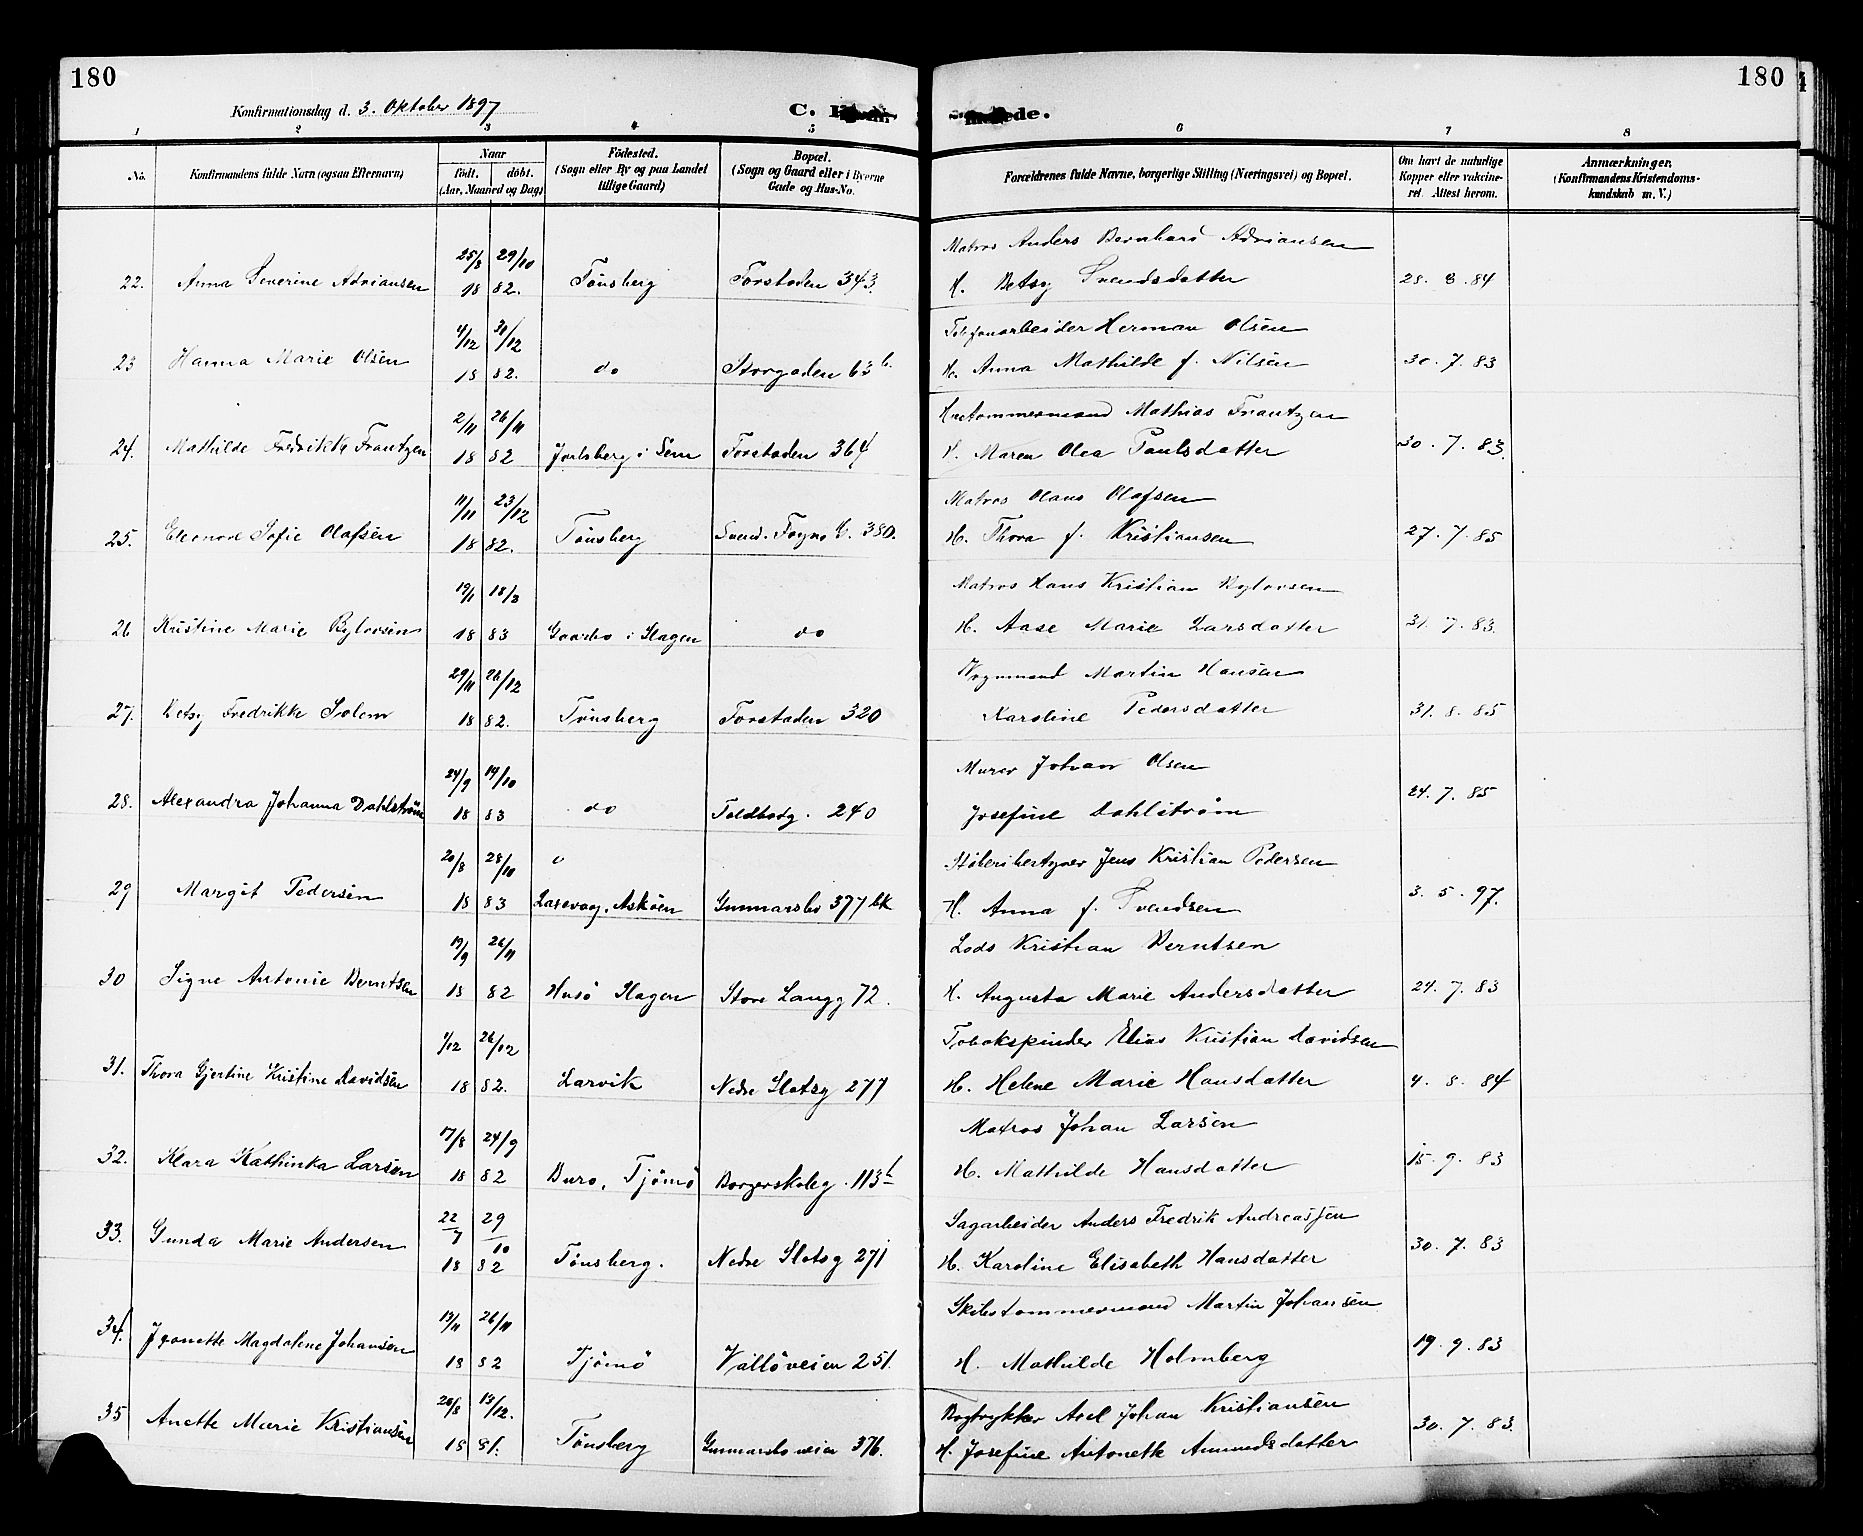 180
180
Konfirmationsdag d. 3. Oktober 1897
C. K
de.
1 2 3 4 5 6 7 8
No. Konfirmandens fulde Navn (ogsaa Efternavn) Naar født. døbt. (Aar, Maaned og Dag) Fødested. (Sogn eller By og paa Landet tillige Gaard) Bopæl. (Sogn og Gaard eller i Byerne Gade og Hus-No. Forældrenes fulde Navne, borgerlige Stilling (Næringsvei) og Bopæl. Om havt de naturlige Kopper eller vaccineret. Attest herom. Anmærkninger. (Konfirmandens Kristendomskundskab m. V.)
25/8 29/10 Matros Anders Bernhard Adriansen
22. Anna Severine Adriansen 18 82. Tønsberg Forstaden 343. H. Betsy Svendsdatter 28. 8. 84
4/12 31/12 Telefonarbeider Herman Olsen
23 Hanna Marie Olsen 18 82. do Storgaden 63 b. H. Anna Mathilde f. Nilsen 30. 7. 83
2/11 26/11 Hustømmermand Mathias Frantzen
24. Mathilde Fredrikke Frantzen 18 82 Jarlsberg i Sem Forstaden 364 H. Maren Olea Paulsdatter 30. 7. 83.
11/11 23/12 Matros Olaus Olafsen
25. Eleonore Sofie Olafsen 18 82. Tønsberg Svend. Foyns G. 380. H. Thora f. Kristiansen 27. 7. 85
19/1 18/3 Matros Hans Kristian
26 Kristine Marie 18 83 Gaarbo i Slagen do H. Aase Marie Larsdatter 31. 7. 83.
29/11 26/12 Vognmand Martin Hansen
27. Betsy Fredrikke Solem 18 82. Tønsberg Forstaden 320 Karoline Pedersdatter 31. 8. 85
24/9 14/10 Murer Johan Olsen
28. Alexandra Johanna Dahlstrøm 18 83 do Toldbodg. 240 Josefine Dahlstrøm 24. 7. 85
20/8 28/10 Støberibestyrer Jens Kristian Pedersen
29 Margit Pedersen 18 83 Laxevaag, Askøen Gunnarsbo 377 bk H. Anna f. Svendsen 3. 5. 97.
19/9 26/11 Lods Kristian Berntsen
30 Signe Antonie Berntsen 18 82 Husø Slagen Store Langg 72. H. Augusta Marie Andersdatter 24. 7. 83
1/12 26/12 Tobakspinder Elias Kristian Davidsen
31. Thora Gjertine Kristine Davidsen 18 82. Larvik Nedre Slotsg 277 H. Helene Marie Hansdatter 4. 8. 84
17/8 24/9 Matros Johan Larsen
32. Klara Kathinka Larsen 18 82 Buro, Tjømø Borgerskoleg. 113 b H. Mathilde Hansdatter 15. 9. 83
22/7 29/10 Sagarbeider Anders Fredrik Andreassen
33. Gunda Marie Andersen 18 82 Tønsberg. Nedre Slotsg 271 H. Karoline Elisabeth Hansdatter 30. 7. 83
13/11 26/11 Skibstømmermand Martin Johansen
34. Jeanette Magdalene Johansen 18 82 Tjømø Valløveien 251. H. Mathilde Holmberg 19. 9. 83
20/8 13/12. Bogtrykker Axel Johan Kristiansen
35 Anette Marie Kristiansen 18 81. Tønsberg Gunnarsboveien 376. H. Josefine Antonette Amundsdatter 30. 7. 83.